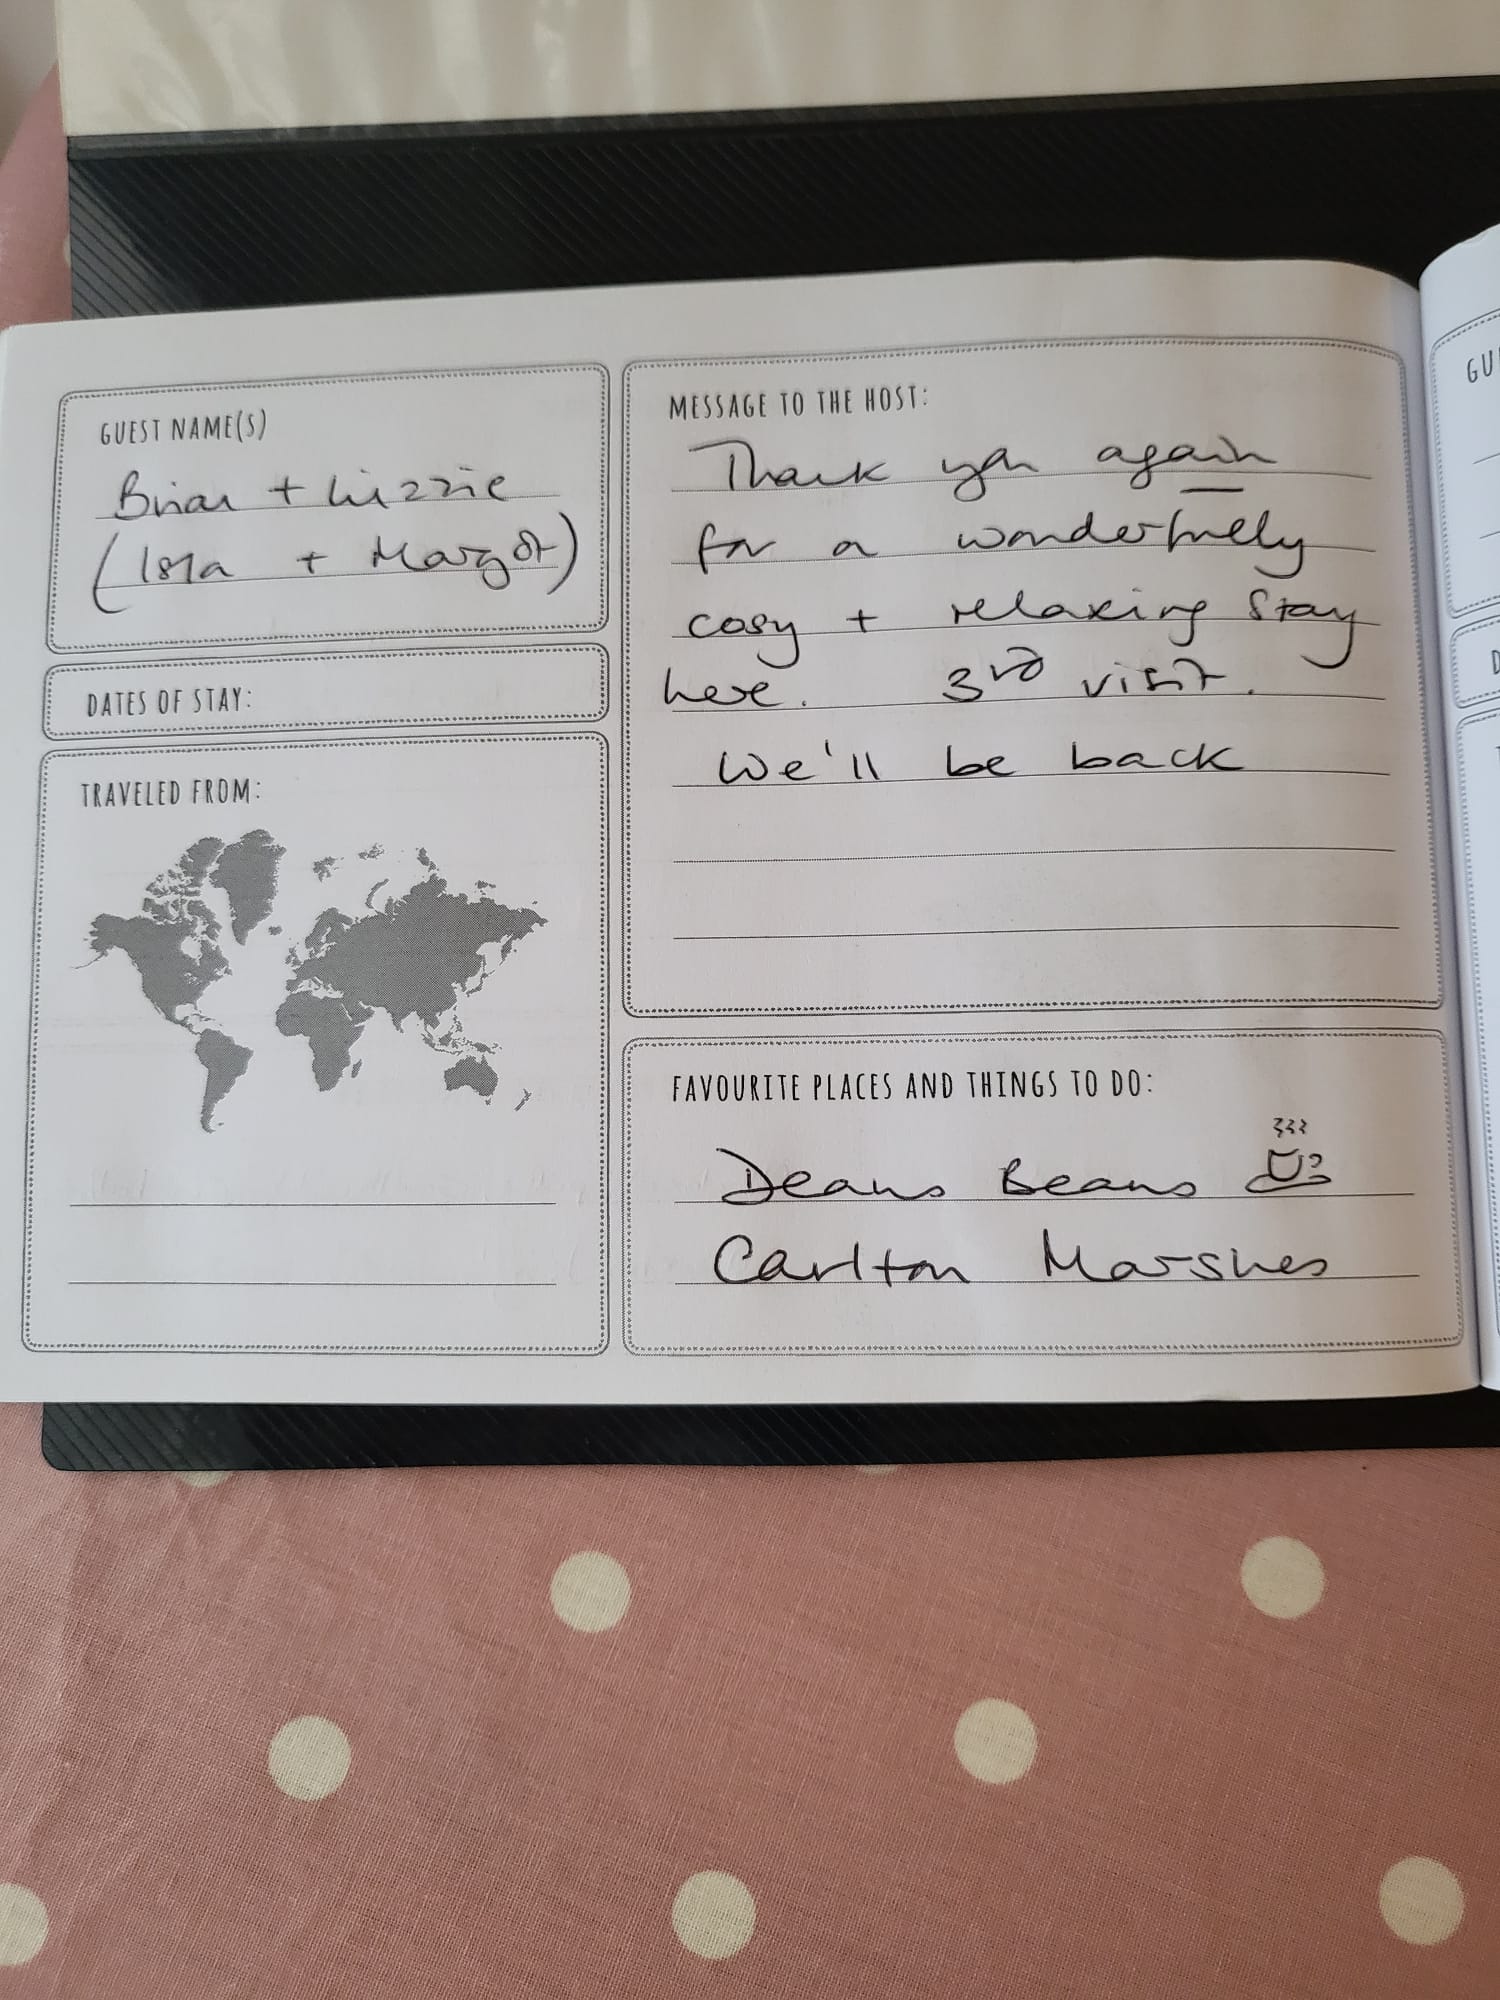 GUEST NAME(S)
Brian + Lizzie
(Isla + Margot)
DATES OF STAY:
TRAVELED FROM:
MESSAGE TO THE HOST:
Thank you again
for a wonderfully
cosy + relaxing stay
here. 3rd visit.
We'll be back
FAVOURITE PLACES AND THINGS TO DO:
Deans Beans
Carlton Marshes
GU
D